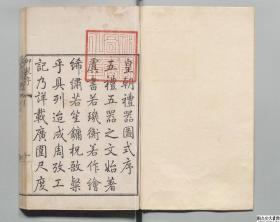 皇朝禮器圖式序
五禮五器之文始著
虞書若璣衡若作繪
絺繡若笙鏞柷敔槩
乎具列迨成周攷工
記乃詳載廣圍尺度